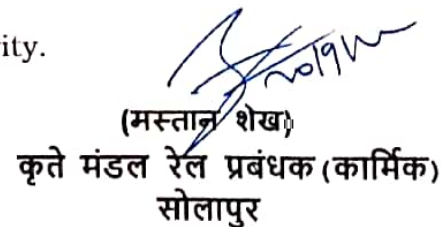 ity.
(मस्तान शेख)
कृते मंडल रेल प्रबंधक (कार्मिक)
सोलापुर